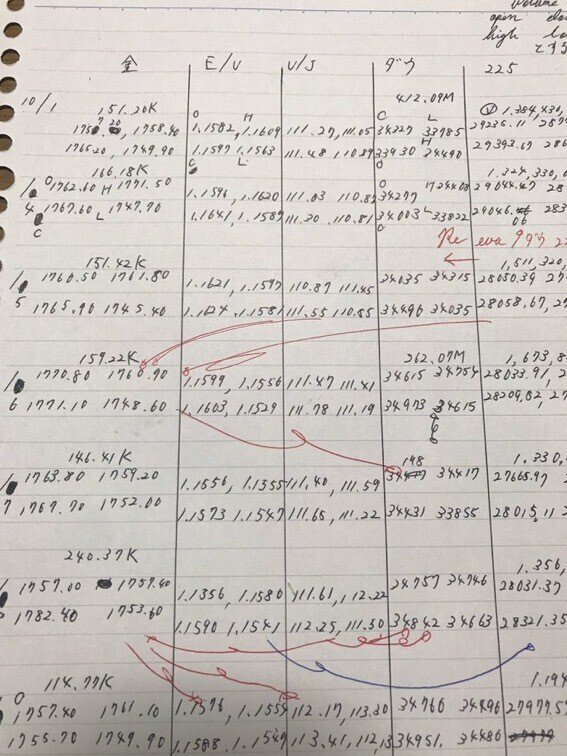 Volume
open clo
high lo
金 E/U U/J ダウ 225
412.09M
10/1 151.20K Ⓥ 1.384,430,
O H C L
1758.40 1.1582, 1.1609 111.27, 111.05 34327 33785 29235.11 287
1765.20, 1749.90 1.1597 1.1563 111.48 110.89 33930 34490 27393.67 288
166.18K C L O H 1.324,330,0
1/ O 1762.60 H 1771.50 1.1596, 1.1620 111.03 110.8 34277 H 29044.47 283
4 1767.60 L 1747.70 1.1641, 1.1589 111.30 110.81 34003 L 33822 29046. 283
C O 06
Re ダウ 22
151.42K ← 1,511,320,
1/ 1760.50 1761.80 1.1621, 1.1597 110.87 111.45 34035 34315 28050.39 27
5 1765.90 1745.40 1.1624, 1.1581 111.55 110.85 34490 34035 28058.67, 27
159.22K 262.07M 1,673,8
1/ 1770.80 1760.90 1.1599, 1.1556 111.47 111.41 34615 34754 28033.91, 2
6 1771.10 1748.60 1.1603, 1.1529 111.78 111.19 34973 34615 28209.82, 27
146.41K 198 1.330,
1/ 1763.80 1759.20 1.1556, 1.1355 111.40, 111.59 34417 27665.97 27
7 1767.70 1752.00 1.1573 1.1547 111.65, 111.22 34431 33855 28015.11 2
240.37K 1.356,
1/ 1757.00 1757.40 1.1356, 1.1580 111.61, 112.22 24757 34746 28031.37
1782.40 1753.60 1.1590 1.1541 112.25, 111.50 34842 34663 28321.35
114.77K 1.194
O 1757.40 1761.10 1.1576, 1.1554 112.17, 113.30 34760 34496 27977.5
1755.70 1749.90 1.1588, 1.1549 113.41, 112.13 34951. 34480